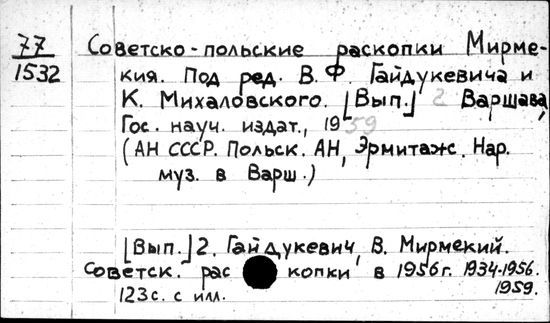 77
1532
Советско-польские раскопки Мирме-
кия. Под ред. В.Ф. Гайдукевича и
К. Михаловского. [Вып.] 2 Варшава,
Гос. науч. издат., 1959
(АН СССР. Польск. АН, Эрмитаж. Нар.
муз. в Варш.)
[Вып.] 2. Гайдукевич, В. Мирмекий.
Советск. рас копки в 1956г. 1934-1956.
1959.
123с. с илл.